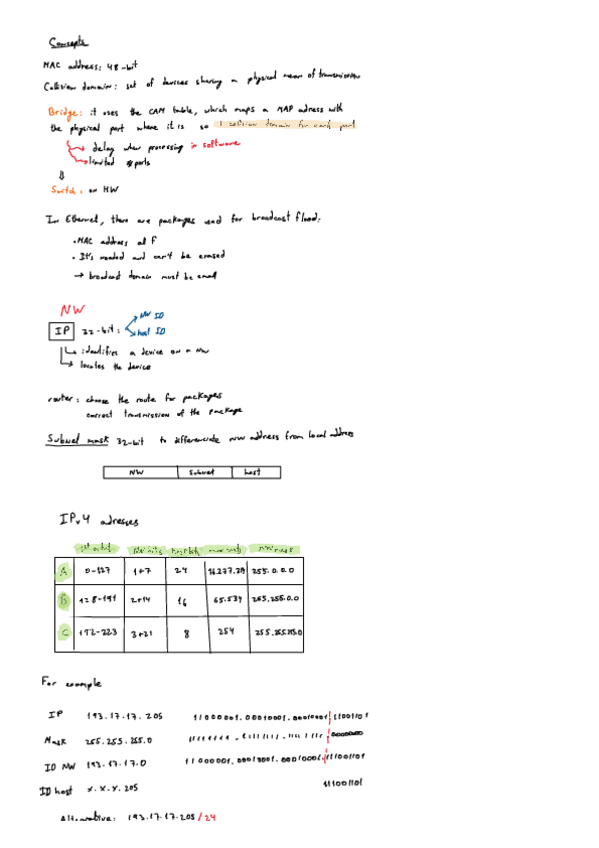 Concepts
MAC address: 48-bit
Collision domain: set of devices sharing a physical mean of transmission
Bridge: it uses the CAM table, which maps a MAP adress with
the physical port where it is so 1 collision domain for each port
delay when processing in software
limited #ports
Switch: on HW
In Ethernet, there are packages used for broadcast flood:
• MAC address all F
• It's needed and can't be erased
→ broadcast domain must be small
NW
IP 32-bit: NW ID
host ID
identifies a device on a NW
locates the device
router: choose the route for packages
correct transmission of the package
Subnet mask 32-bit to differenciate NW address from local address
NW subnet host
IPv4 adresses
1st octet NW bits host bits NW mask
A 0-127 1+7 24 255.0.0.0
B 128-191 2+14 16 65.534 255.255.0.0
C 192-223 3+21 8 254 255.255.255.0
For example
IP 193.17.17.205 11000001.00010001.00010001.11001101
Mask 255.255.255.0 11111111.11111111.11111111.00000000
ID NW 193.17.17.0 11000001.00010001.00010001.
ID host x.x.x.205
Alternative: 193.17.17.205/24